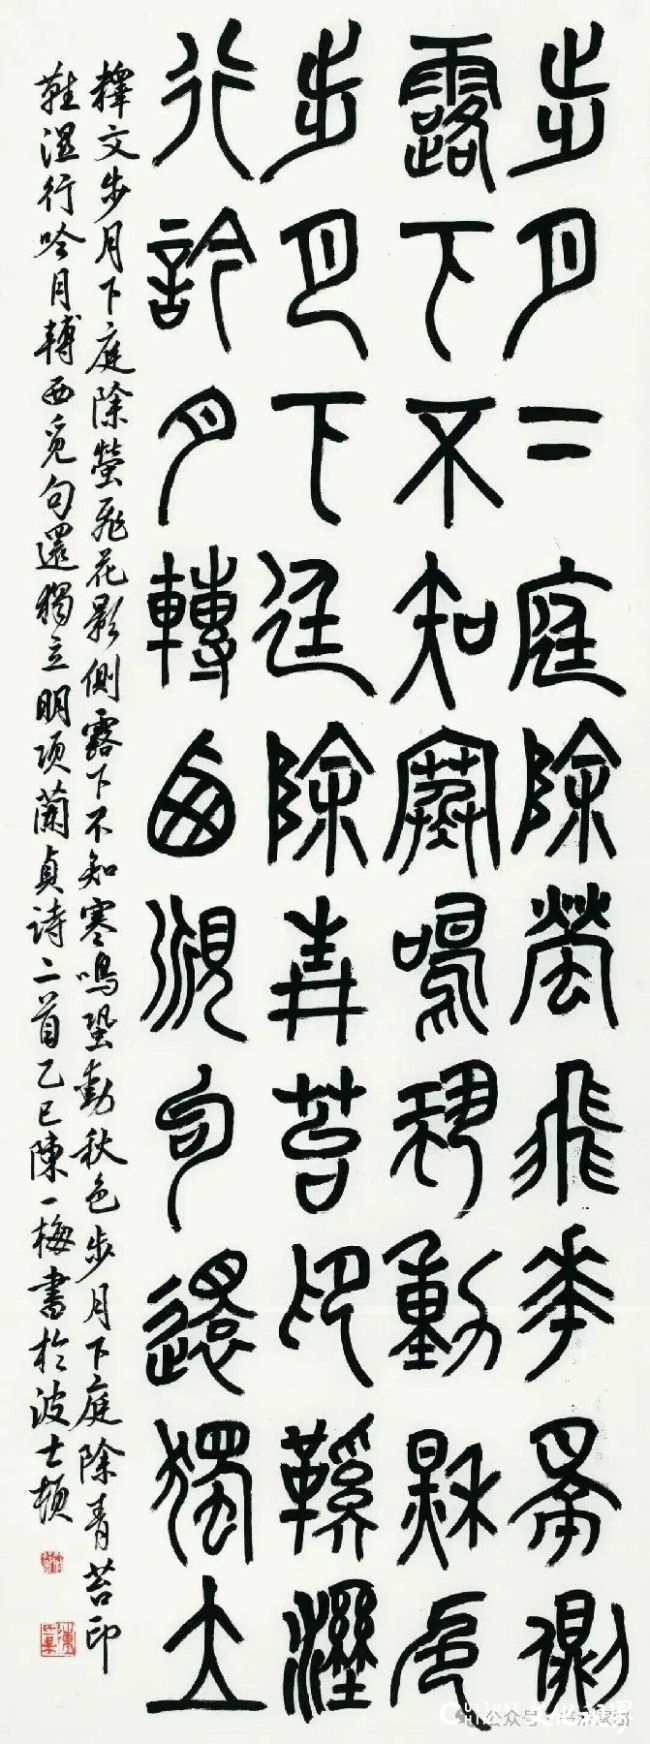 步月下庭除螢飛花影側
露下不知寒鳴蛩動秋色
步月下庭除青苔印鞵溼
行訡月轉西覓句還獨立
釋文步月下庭除螢飛花影側露下不知寒鳴蛩動秋色步月下庭除青苔印
鞋濕行吟月轉西覓句還獨立明項蘭貞诗二首乙巳陳一梅書於波士頓
公众号